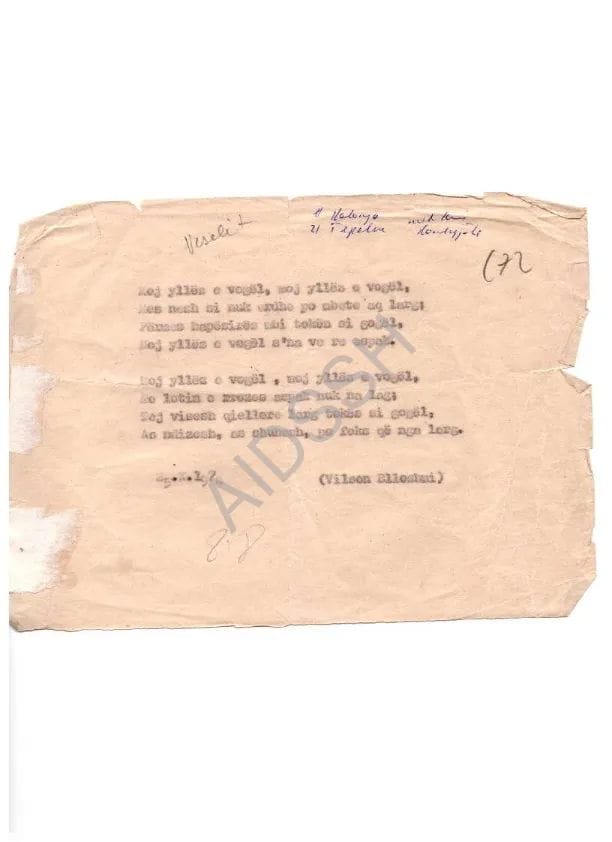 Veselit
(72
Moj yllës e vogël, moj yllës e vogël,
Mes nesh si nuk erdhe po mbete aq larg;
Përmes hapësirës mbi tokën si gogël,
Moj yllës e vogël s'na ve re aspak.
Moj yllës e vogël , moj yllës e vogël,
Me lotin e rrezes aspak nuk na lag;
Moj visesh qiellore larg tokës si gogël,
As ndizesh, as shuhesh, po feks që nga larg.
(Vilson Blloshmi)
AIDSSH